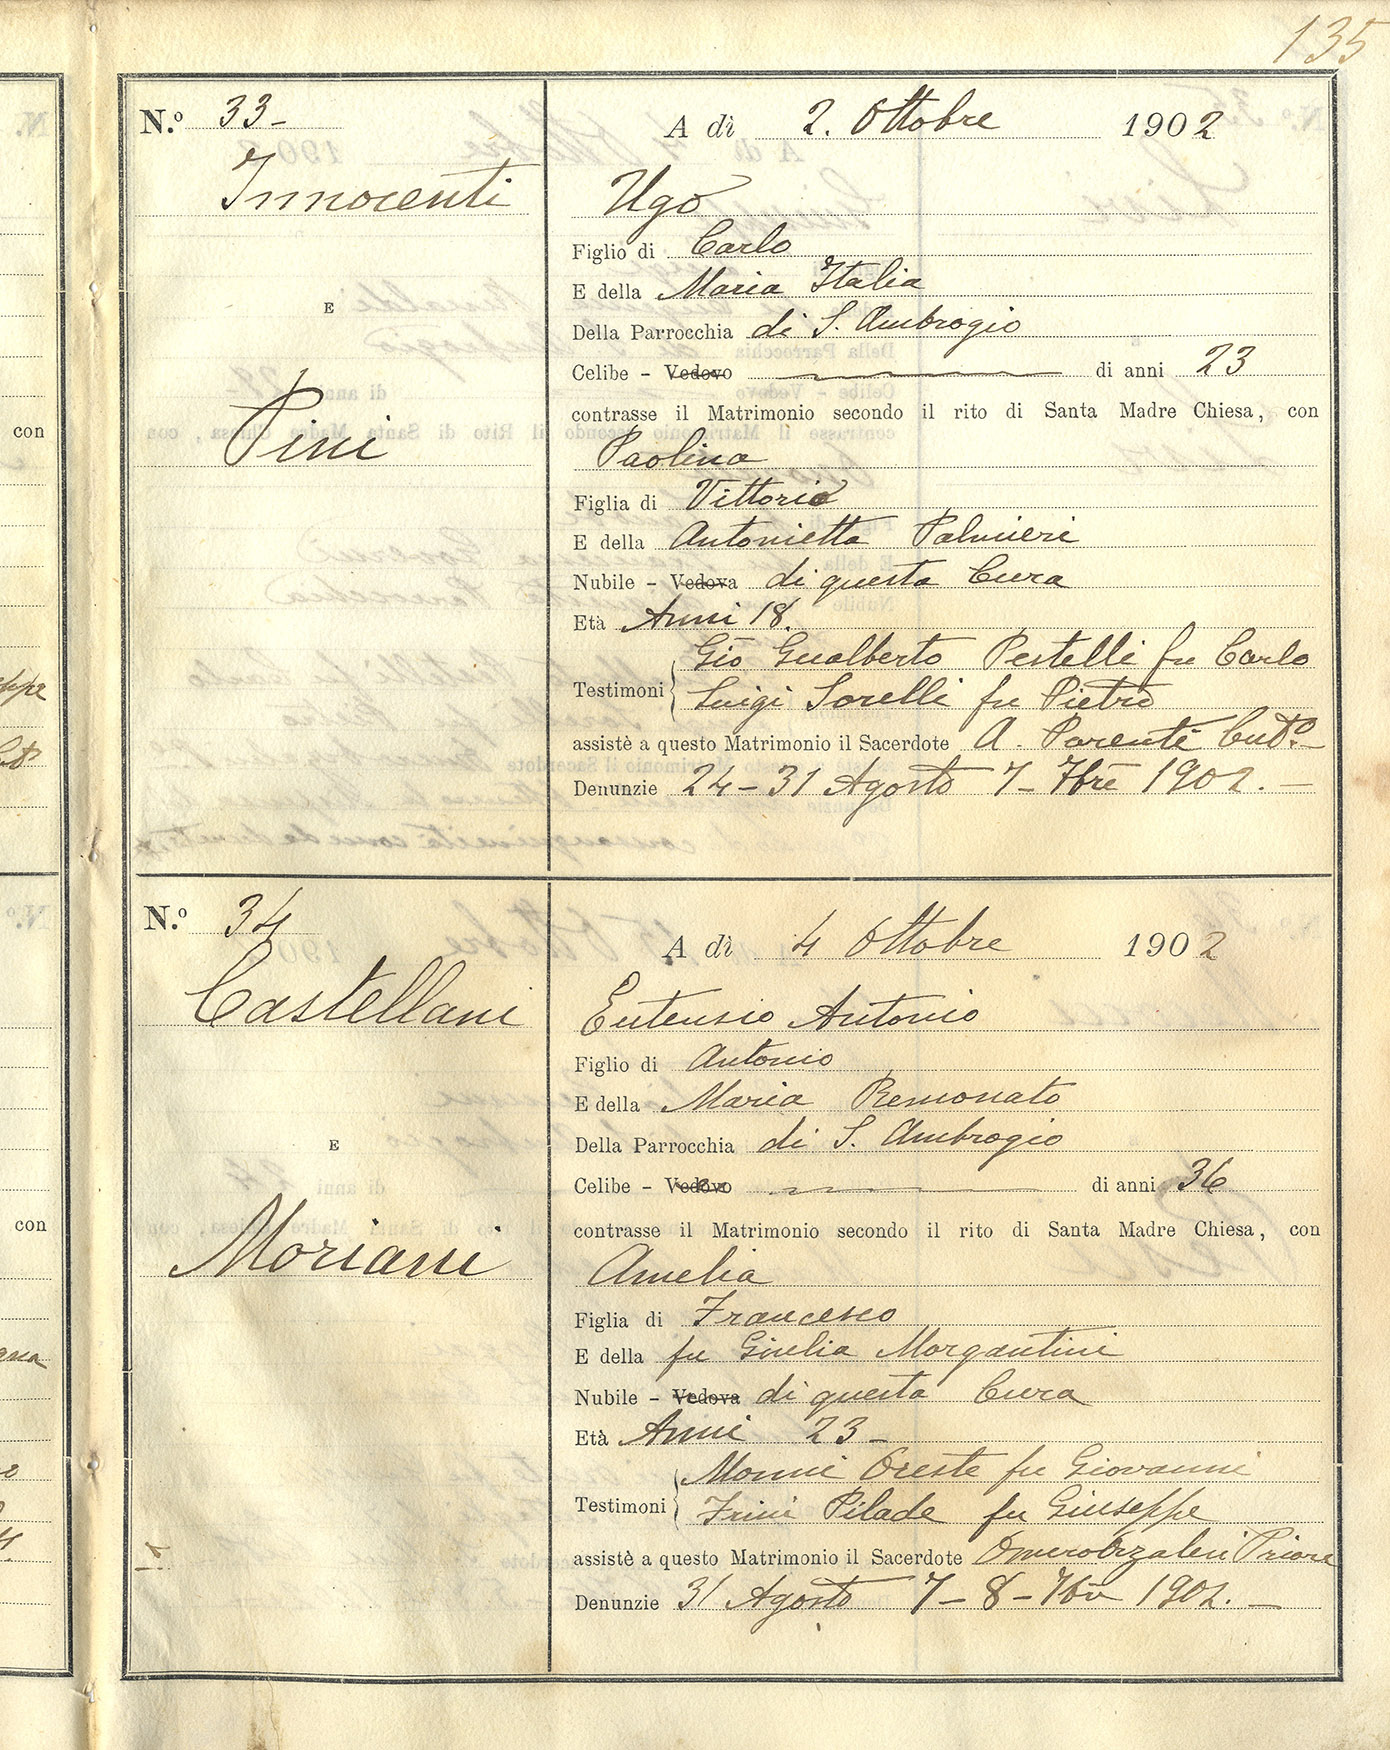 135
N.º 33-
Innocenti
E
Pini
A dì 2. Ottobre 1902
Ugo
Figlio di Carlo
E della Maria Italia
Della Parrocchia di S. Ambrogio
Celibe - Vedovo di anni 23
contrasse il Matrimonio secondo il rito di Santa Madre Chiesa, con
Paolina
Figlia di Vittorio
E della Antonietta Palmieri
Nubile - Vedova di questa Cura
Età Anni 18.
Gio Gualberto Pestelli fu Carlo
Testimoni
Luigi Sorelli fu Pietro
assistè a questo Matrimonio il Sacerdote A. Parenti Cutº.-
Denunzie 24-31 Agosto 7- 7bre 1902.-
N.º 34
Castellani
E
Moriani
A dì 4 Ottobre 1902
Eutensio Antonio
Figlio di Antonio
E della Maria Remonato
Della Parrocchia di S. Ambrogio
Celibe - Vedovo di anni 36
contrasse il Matrimonio secondo il rito di Santa Madre Chiesa, con
Amelia
Figlia di Francesco
E della fu Giulia Morgantini
Nubile - Vedova di questa Cura
Età Anni 23-
Monni Oreste fu Giovanni
Testimoni
Frini Pilade fu Giuseppe
assistè a questo Matrimonio il Sacerdote Priore
Denunzie 31 Agosto 7-8-7br 1902.-
con
con